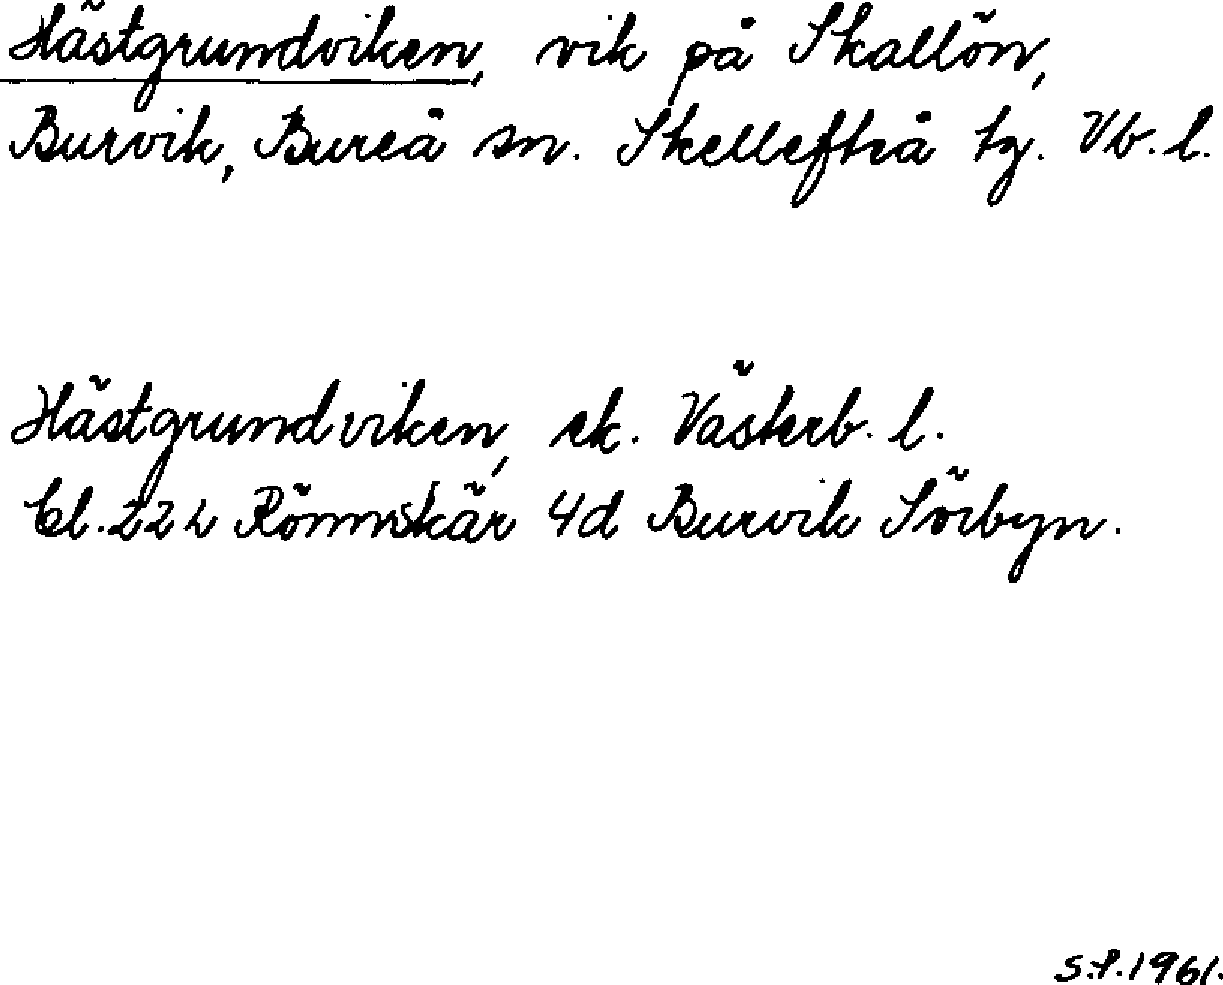 Hästgrundviken, vik på Skallön,
Burvik, Bureå sn. Skellefteå tg. Vb. l.
Hästgrundviken, ek. Västerb. l.
bl. 22 L Rönnskär 4d Burvik Sörbyn.
S.P. 1961.